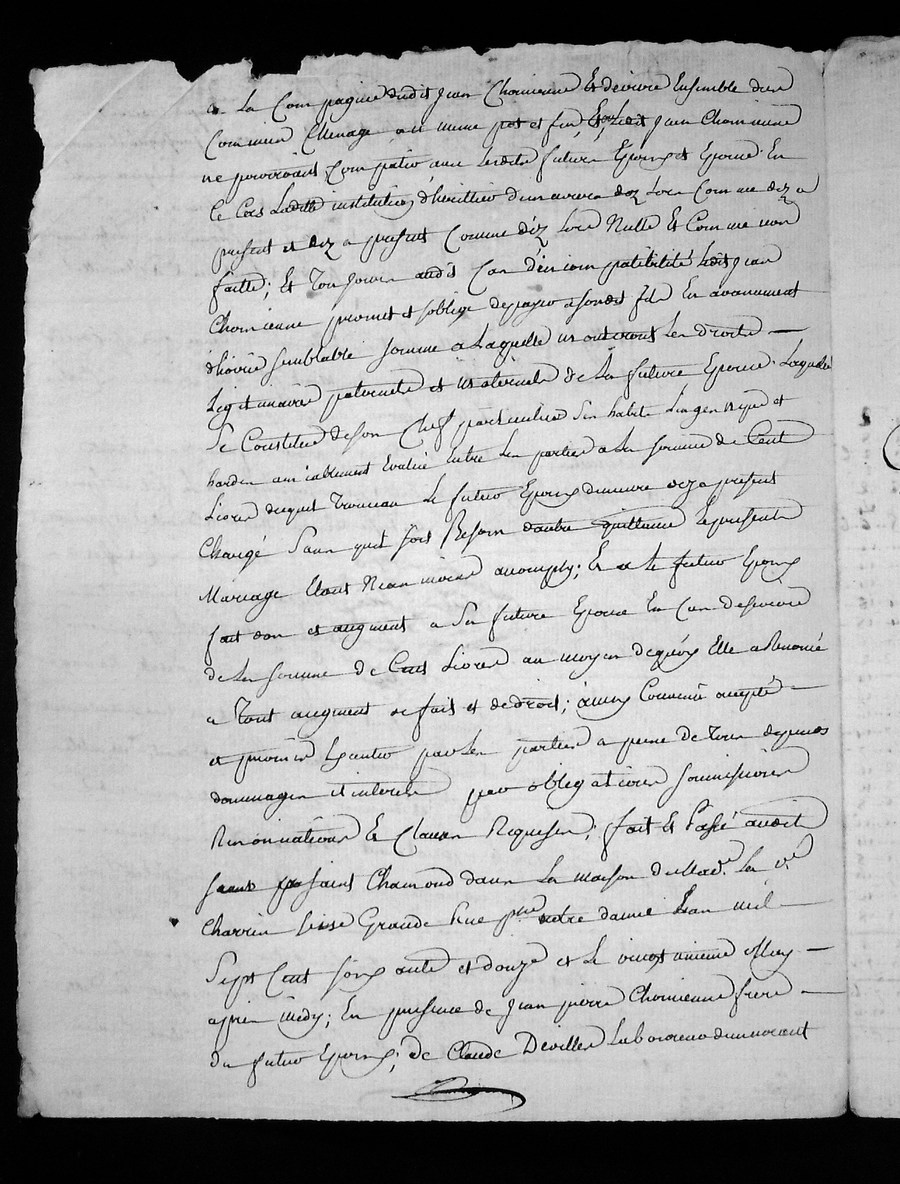 a La Compagnie dudit Jean Chomienne Et de vivre Ensemble dun
Commun Menage a un meme pot et feu Et ou Ledit Jean Chomienne
ne pourroient Compatir avec Lesdits futurs Epoux et Epouse En
Ce Cas Ladite institution d'heritier demeurera dez Lors Comme dez a
present et dez a present Comme déz Lors Nulle Et Comme non
faitte; Et Toujours audit Cas d'incompatibilité Ledit Jean
Chomienne promet et soblige de payer a sondit fils En avancement
d'hoirie semblable somme a Laquelle monteront Les droits
Legitimaires paternels et maternels de La future Epouse Laquelle
Se Constitue de son Chef particulier Ses habits Linges nipes et
hardes amiablement Evalué Entre Les parties a La somme de Cent
Livres duquel Trousseau Le futur Epoux demeure deja present
Chargé Sans quil fois Besoin dautre quittance Le present
Mariage Etant Neanmoins accomply; Et a Le futur Epoux
fait don et augment a Sa future Epouse En Cas de survie
de La somme de Cent Livres au moyen de quoy Elle a Renoncé
a Tout augment de fait et de droit; ainsy Convenû accepté
et promis Executer par Les parties a peine de Tous depends
dommages et interets par obligations soumissions
Renonciations Et Clauses Requises; fait Et Passé audit
saint Chamond dans La maison de Mad.e La v.e
Charrin Sisse Grande Rue psse notre dame Lan mil
Sept Cent soixante et douze et Le vingt uniéme May
apres midy; En presence de Jean pierre Chomienne frere
du futur Epoux; de Claude Deville Laboureur demeurant